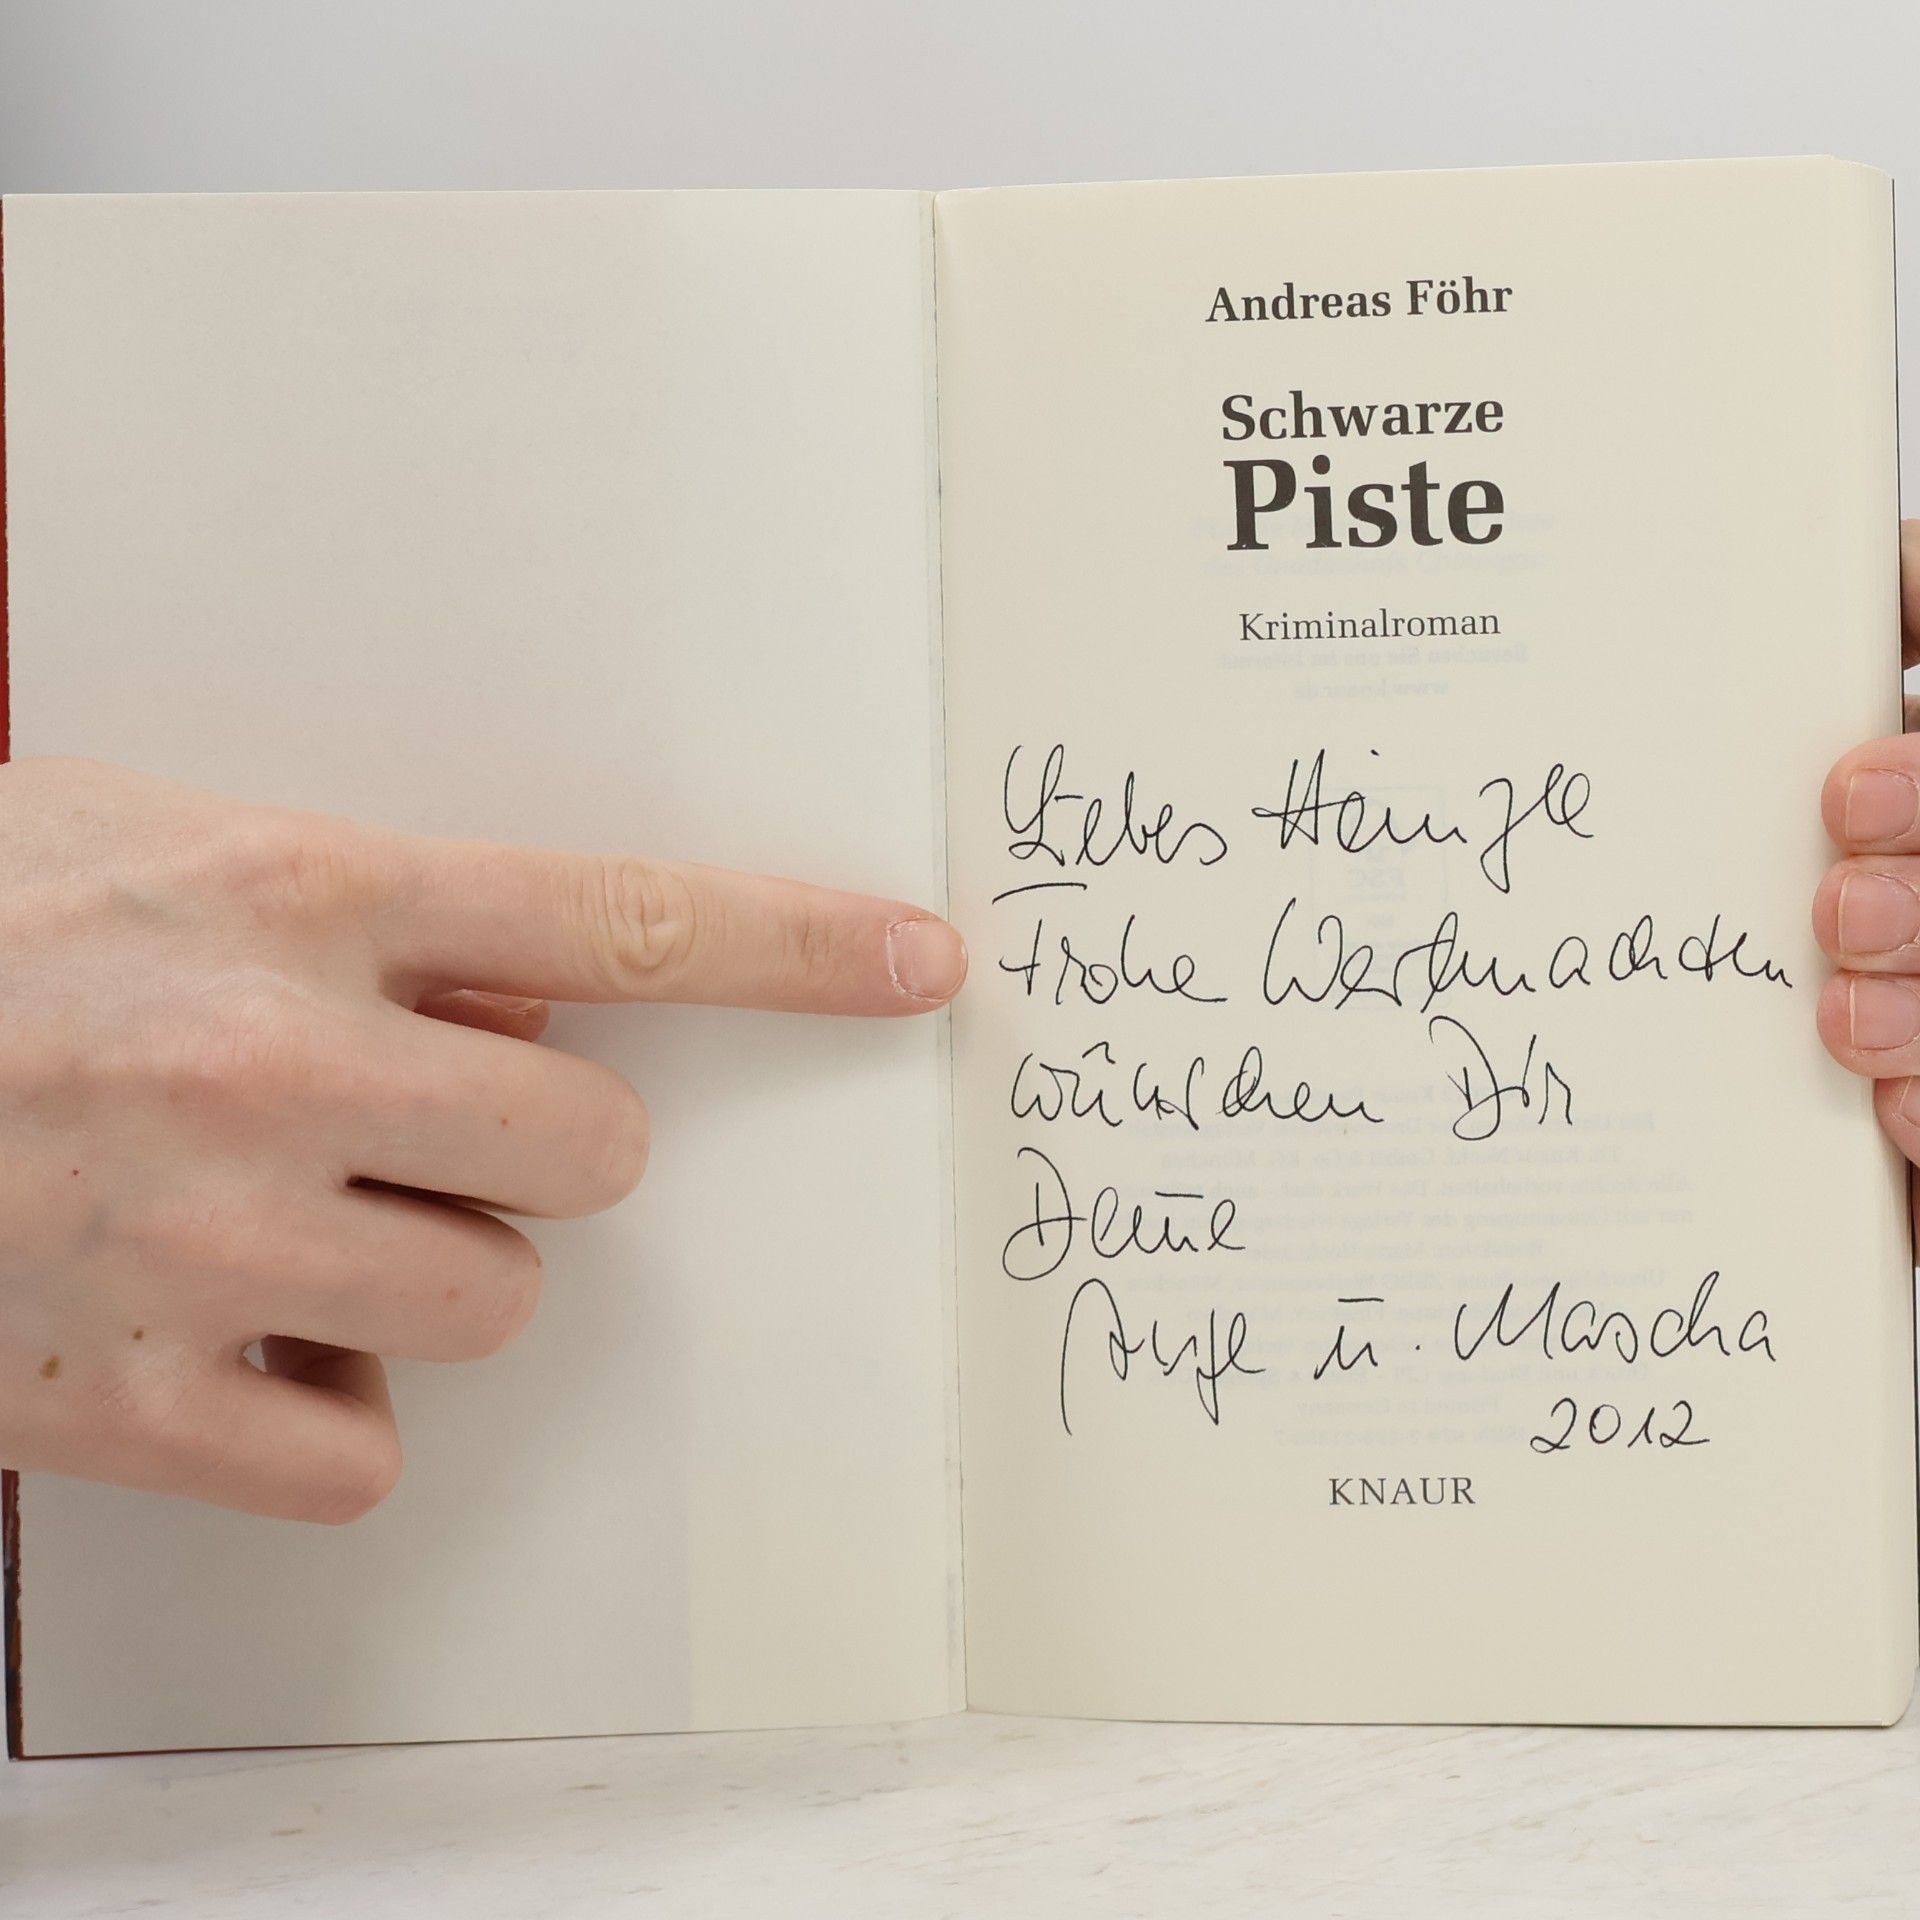 Andreas Föhr
Schwarze
Piste
Kriminalroman
Liebes Heinzle
Frohe Weihnachten
wünschen Dir
Deine
u. Mascha
2012
KNAUR